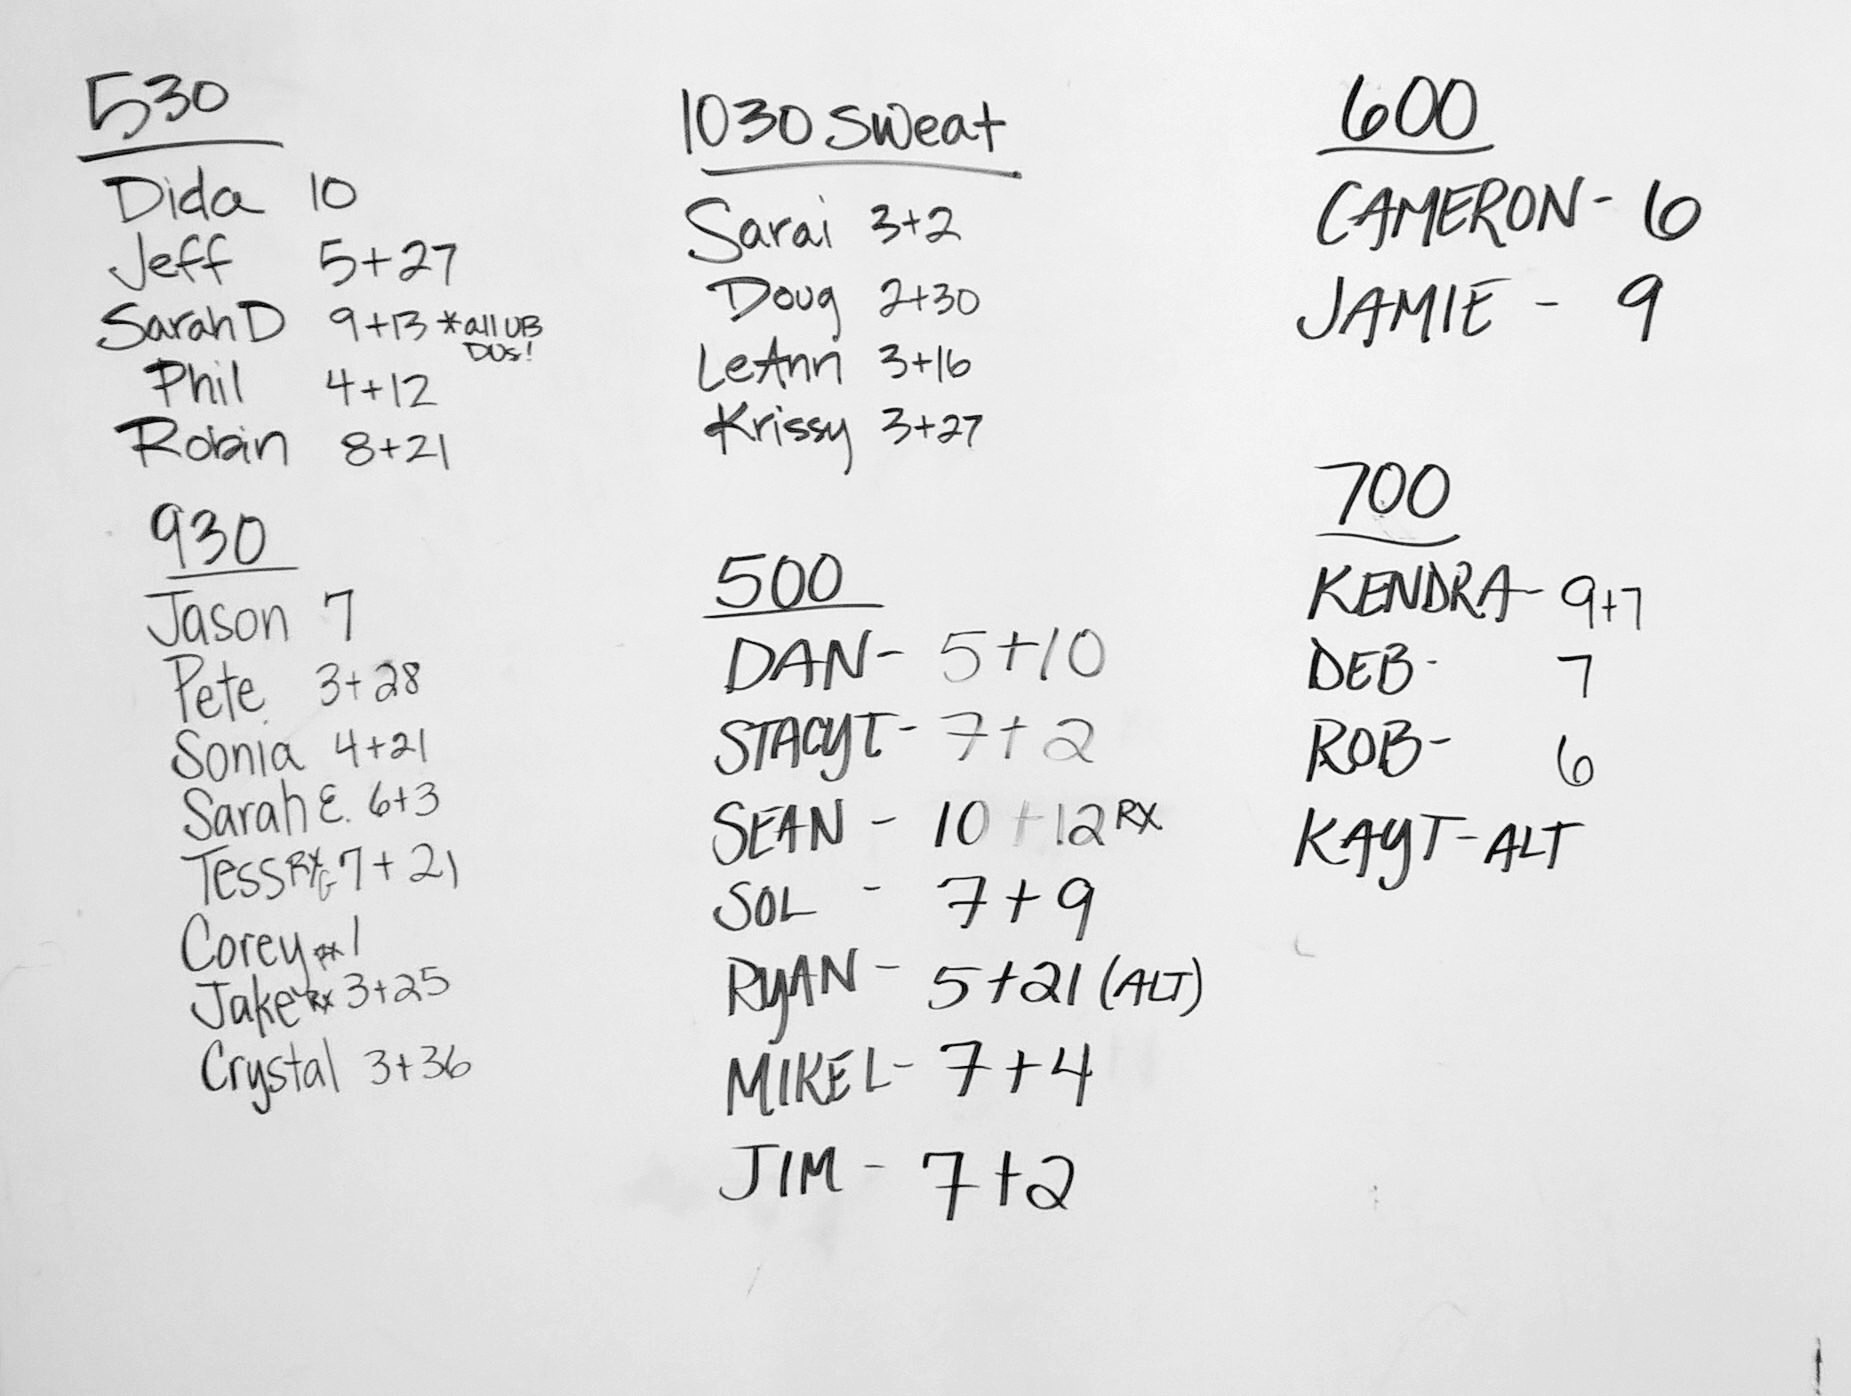 530
Dida 10
Jeff 5+27
Sarah D 9+13 *all UB
DUs!
Phil 4+12
Robin 8+21
930
Jason 7
Pete 3+28
Sonia 4+21
Sarah E. 6+3
Tess RXG 7+21
Corey RX 1
Jake RX 3+25
Crystal 3+36
1030 Sweat
Sarai 3+2
Doug 2+30
LeAnn 3+16
Krissy 3+27
500
DAN- 5+10
STACY T- 7+2
SEAN - 10+12 RX
SOL - 7+9
RYAN - 5+21 (ALT)
MIKE L- 7+4
JIM - 7+2
600
CAMERON- 6
JAMIE - 9
700
KENDRA- 9+7
DEB- 7
ROB- 6
KAY T-ALT